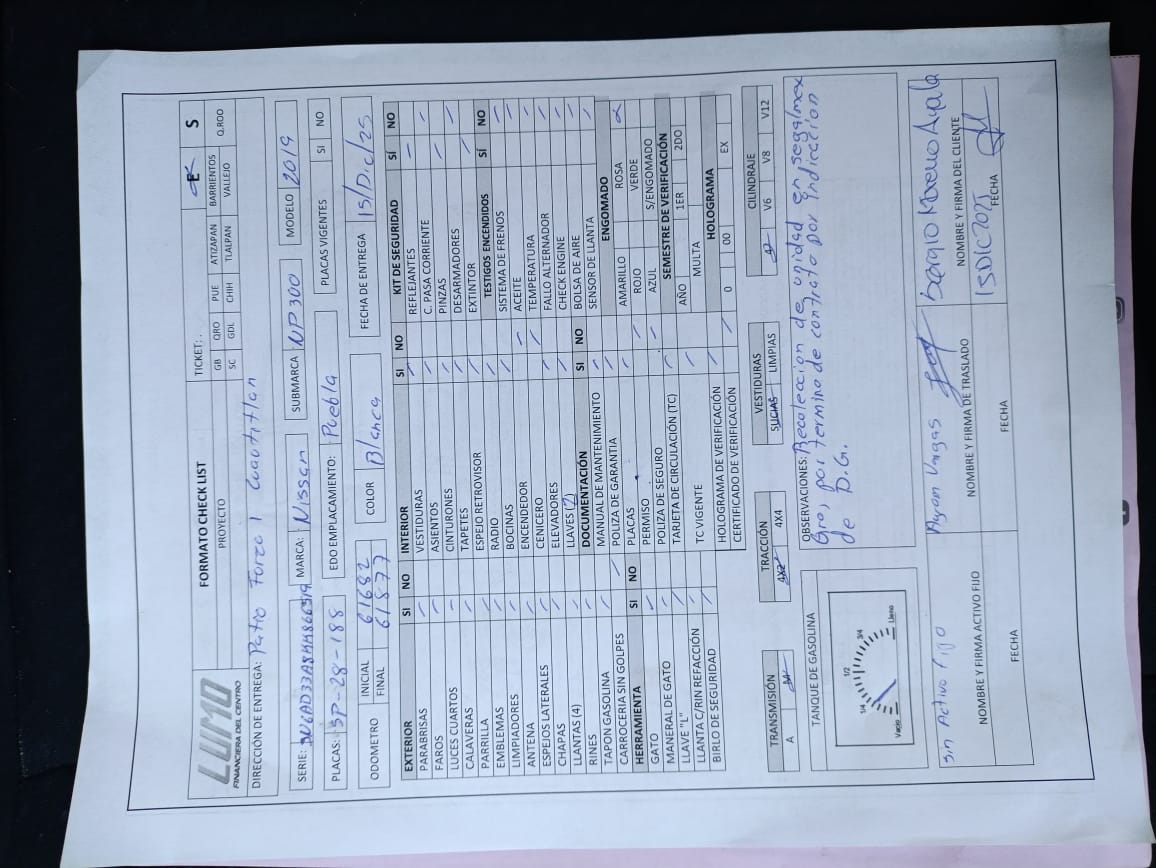 LUMO
FINANCIERA DEL CENTRO
FORMATO CHECK LIST
PROYECTO
TICKET: .
E S
GB QRO PUE ATIZAPAN BARRIENTOS
SC GDL CHIH TLALPAN VALLEJO Q.ROO
DIRECCIÓN DE ENTREGA: Patio Forza 1 Cuautitlan
SERIE: MARCA: Nissan SUBMARCA NP300 MODELO 2019
PLACAS: SP-28-188 EDO EMPLACAMIENTO: Puebla PLACAS VIGENTES SI NO
ODOMETRO INICIAL 61682 COLOR Blanca FECHA DE ENTREGA 15/Dic/25
FINAL 61877
EXTERIOR SI NO
PARABRISAS
FAROS
LUCES CUARTOS
CALAVERAS
PARRILLA
EMBLEMAS
LIMPIADORES
ANTENA
ESPEJOS LATERALES
CHAPAS
LLANTAS (4)
RINES
TAPON GASOLINA
CARROCERIA SIN GOLPES
HERRAMIENTA SI NO
GATO
MANERAL DE GATO
LLAVE "L"
LLANTA C/RIN REFACCIÓN
BIRLO DE SEGURIDAD
INTERIOR SI NO
VESTIDURAS
ASIENTOS
CINTURONES
TAPETES
ESPEJO RETROVISOR
RADIO
BOCINAS
ENCENDEDOR
CENICERO
ELEVADORES
LLAVES (2)
DOCUMENTACIÓN SI NO
MANUAL DE MANTENIMIENTO
POLIZA DE GARANTIA
PLACAS
PERMISO
POLIZA DE SEGURO
TARJETA DE CIRCULACIÓN (TC)
TC VIGENTE
HOLOGRAMA DE VERIFICACIÓN
CERTIFICADO DE VERIFICACIÓN
KIT DE SEGURIDAD SÍ NO
REFLEJANTES
C. PASA CORRIENTE
PINZAS
DESARMADORES
EXTINTOR
TESTIGOS ENCENDIDOS SÍ NO
SISTEMA DE FRENOS
ACEITE
TEMPERATURA
FALLO ALTERNADOR
CHECK ENGINE
BOLSA DE AIRE
SENSOR DE LLANTA
ENGOMADO
AMARILLO ROSA
ROJO VERDE
AZUL S/ENGOMADO
SEMESTRE DE VERIFICACIÓN
AÑO 1ER 2DO
MULTA
HOLOGRAMA
0 00 EX
TRANSMISIÓN
A M
TRACCIÓN
4X2 4X4
VESTIDURAS
SUCIAS LIMPIAS
CILINDRAJE
V6 V8 V12
TANQUE DE GASOLINA
Vacio 1/4 1/2 3/4 Lleno
OBSERVACIONES: Recoleccion de unidad en segalmex
Gro, por termino de contrato por indicacion
de D.G.
Sin Activo Fijo
NOMBRE Y FIRMA ACTIVO FIJO
FECHA
Vargas
NOMBRE Y FIRMA DE TRASLADO
FECHA
Sergio Moreno Ayala
NOMBRE Y FIRMA DEL CLIENTE
15DIC2025 FECHA